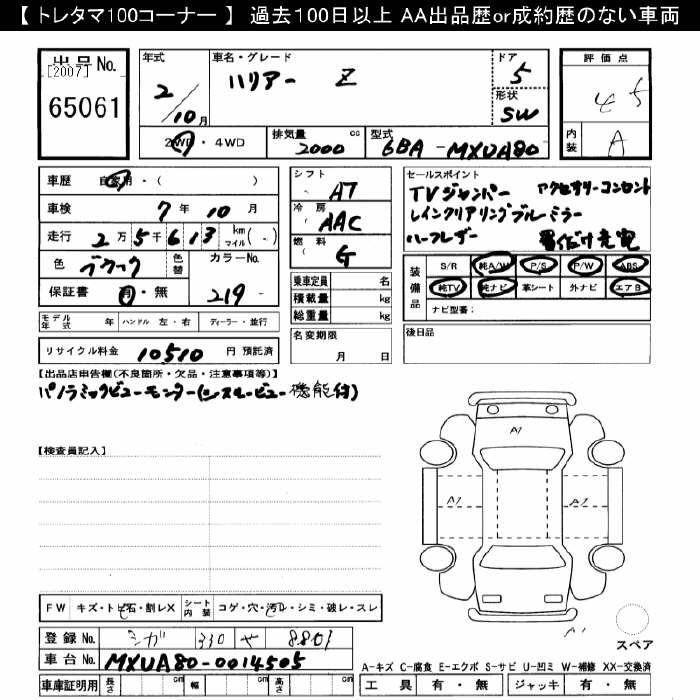 【 トレタマ100コーナー 】 過去100日以上 AA出品歴or成約歴のない車両
出品No.
[2007]
65061
年式
2/10月
車名・グレード
ハリアー Z
ドア
5
形状
SW
評価点
4.5
内装
A
2WD・4WD
排気量 cc
2000
型式
6BA-MXUA80
車歴 自家用・( )
車検 7年10月
走行 2万5千613 km マイル( )
色 ブラック
色替
カラーNo.
219
保証書 有・無
シフト
A7
冷房
AAC
燃料
G
乗車定員 名
積載量 kg
総重量 kg
名変期限
月 日
セールスポイント
TVジャンパー アクセサリーコンセント
レインクリアリングブルーミラー
ハーフレザー 置くだけ充電
装備品
S/R 純A/W P/S P/W ABS
純TV 純ナビ 革シート 外ナビ エアB
ナビ型番:
後日品
モデル年式 年 ハンドル 左・右 ディーラー・並行
リサイクル料金 10510 円 預託済
【出品店申告欄(不良箇所・欠品・注意事項等)】
パノラミックビューモニター(シースルービュー機能付)
【検査員記入】
A1
A1
A1
FW キズ・トビ石・割レX シート内装 コゲ・穴・汚レ・シミ・破レ・スレ
登録No. シガ 330 せ 8801
車台No. MXUA80-0014505
車庫証明用 長さ cm 幅 cm 高さ cm
スペア
A-キズ C-腐食 E-エクボ S-サビ U-凹ミ W-補修 XX-交換済
工具 有・無 ジャッキ 有・無